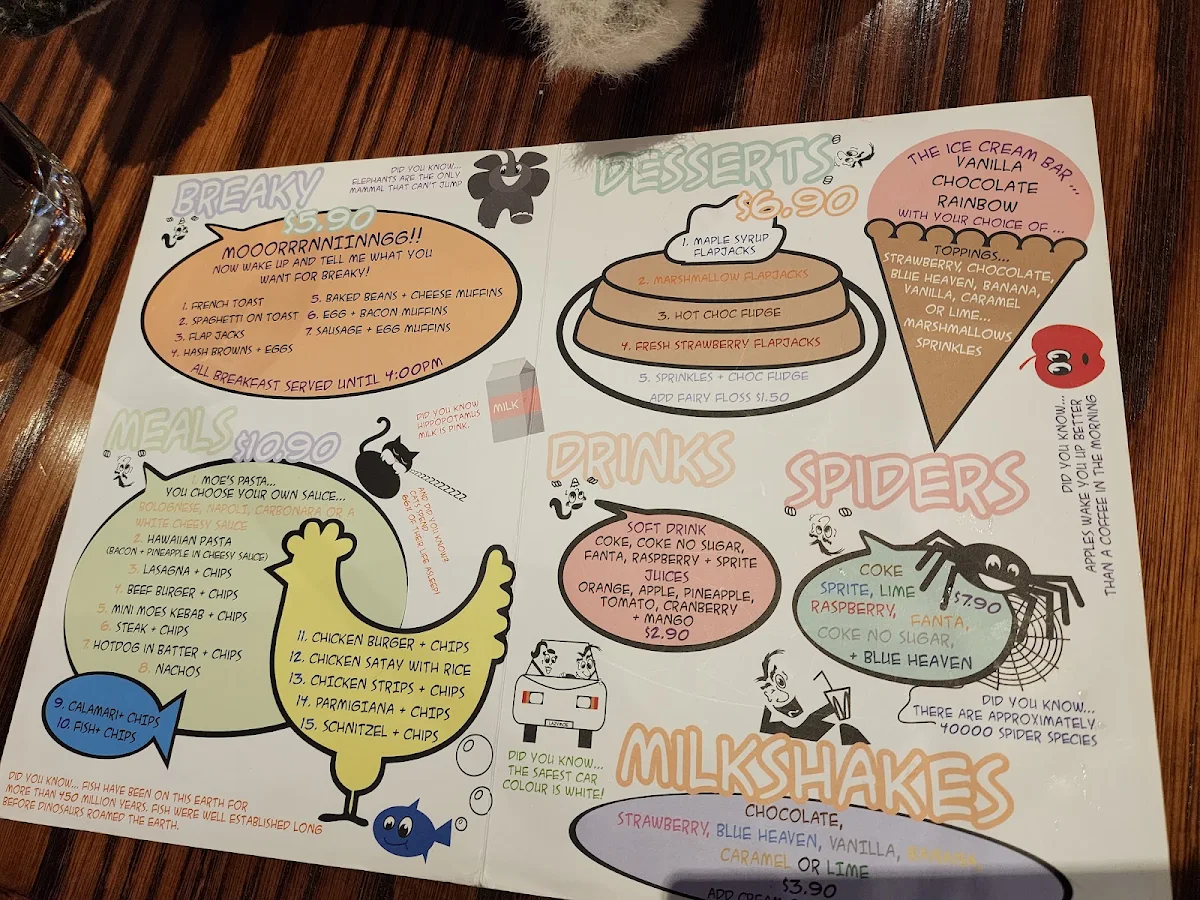 BREAKY
$5.90
DID YOU KNOW...
ELEPHANTS ARE THE ONLY
MAMMAL THAT CAN'T JUMP
MOOORRRNNIINNGG!!
NOW WAKE UP AND TELL ME WHAT YOU
WANT FOR BREAKY!
1. FRENCH TOAST
2. SPAGHETTI ON TOAST
3. FLAP JACKS
4. HASH BROWNS + EGGS
5. BAKED BEANS + CHEESE MUFFINS
6. EGG + BACON MUFFINS
7. SAUSAGE + EGG MUFFINS
ALL BREAKFAST SERVED UNTIL 4:00PM
MEALS
$10.90
DID YOU KNOW
HIPPOPOTAMUS
MILK IS PINK.
MILK
AND DID YOU KNOW?
CATS SPEND
66% OF THEIR LIFE ASLEEP!
MOE'S PASTA...
YOU CHOOSE YOUR OWN SAUCE...
BOLOGNESE, NAPOLI, CARBONARA OR A
WHITE CHEESY SAUCE
2. HAWAIIAN PASTA
(BACON + PINEAPPLE IN CHEESY SAUCE)
3. LASAGNA + CHIPS
4. BEEF BURGER + CHIPS
5. MINI MOES KEBAB + CHIPS
6. STEAK + CHIPS
7. HOTDOG IN BATTER + CHIPS
8. NACHOS
9. CALAMARI+ CHIPS
10. FISH+ CHIPS
11. CHICKEN BURGER + CHIPS
12. CHICKEN SATAY WITH RICE
13. CHICKEN STRIPS + CHIPS
14. PARMIGIANA + CHIPS
15. SCHNITZEL + CHIPS
DID YOU KNOW... FISH HAVE BEEN ON THIS EARTH FOR
MORE THAN 450 MILLION YEARS. FISH WERE WELL ESTABLISHED LONG
BEFORE DINOSAURS ROAMED THE EARTH.
DESSERTS
$6.90
1. MAPLE SYRUP
FLAPJACKS
2. MARSHMALLOW FLAPJACKS
3. HOT CHOC FUDGE
4. FRESH STRAWBERRY FLAPJACKS
5. SPRINKLES + CHOC FUDGE
ADD FAIRY FLOSS $1.50
THE ICE CREAM BAR ...
VANILLA
CHOCOLATE
RAINBOW
WITH YOUR CHOICE OF ...
TOPPINGS...
STRAWBERRY, CHOCOLATE,
BLUE HEAVEN, BANANA,
VANILLA, CARAMEL
OR LIME...
MARSHMALLOWS
SPRINKLES
DID YOU KNOW...
APPLES WAKE YOU UP BETTER
THAN A COFFEE IN THE MORNING
DRINKS
SOFT DRINK
COKE, COKE NO SUGAR,
FANTA, RASPBERRY + SPRITE
JUICES
ORANGE, APPLE, PINEAPPLE,
TOMATO, CRANBERRY
+ MANGO
$2.90
SPIDERS
COKE
SPRITE, LIME
$7.90
RASPBERRY, FANTA,
COKE NO SUGAR,
+ BLUE HEAVEN
DID YOU KNOW...
THERE ARE APPROXIMATELY
40000 SPIDER SPECIES
DID YOU KNOW...
THE SAFEST CAR
COLOUR IS WHITE!
MILKSHAKES
CHOCOLATE,
STRAWBERRY, BLUE HEAVEN, VANILLA, BANANA,
CARAMEL OR LIME
$3.90
ADD